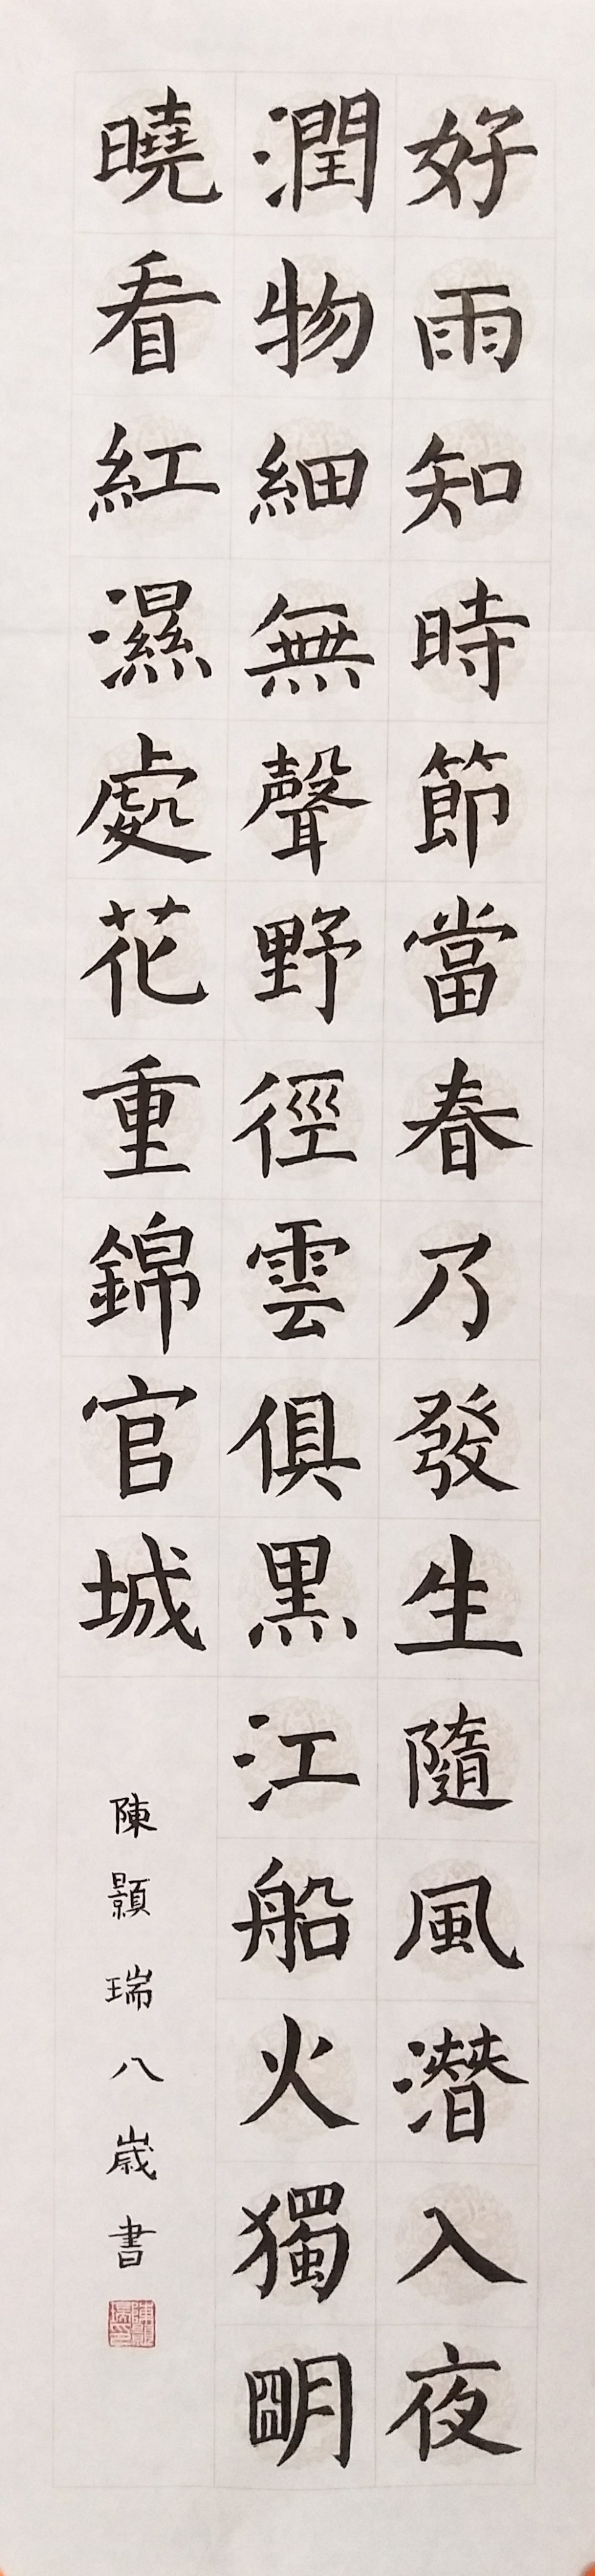 好雨知時節當春乃發生隨風潛入夜
潤物細無聲野徑雲俱黑江船火獨明
曉看紅濕處花重錦官城
陳顥瑞八歲書